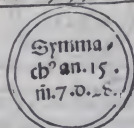 Symma⸗
chꝰ an. 15.
m̄. 7. d. 28.